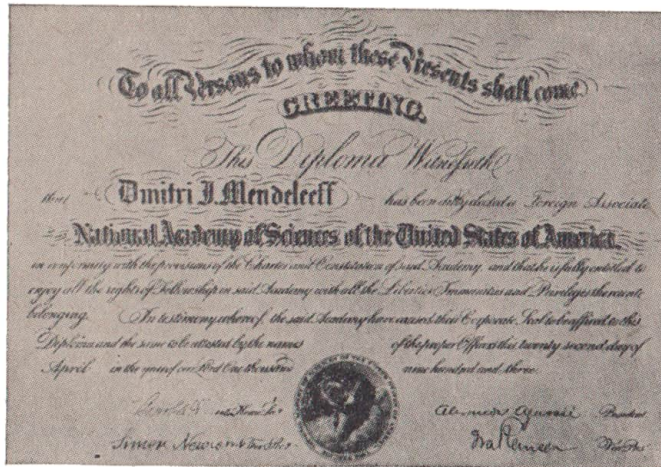 To all Persons to whom these Presents shall come
GREETING.
This Diploma Witnesseth
that Dmitri J. Mendeleeff has been duly elected a Foreign Associate
National Academy of Sciences of the United States of America.
in conformity with the provisions of the Charter and Constitution of said Academy, and that he is fully entitled to
enjoy all the rights of Fellowship in said Academy with all the Liberties Immunities and Privileges thereunto
belonging. In testimony whereof, the said Academy have caused their Corporate Seal to be affixed to this
Diploma and the same to be attested by the names of the proper Officers this twenty second day of
April in the year of our Lord One thousand nine hundred and three.
Alexander Agassiz President
Simon Newcomb Ira Remsen